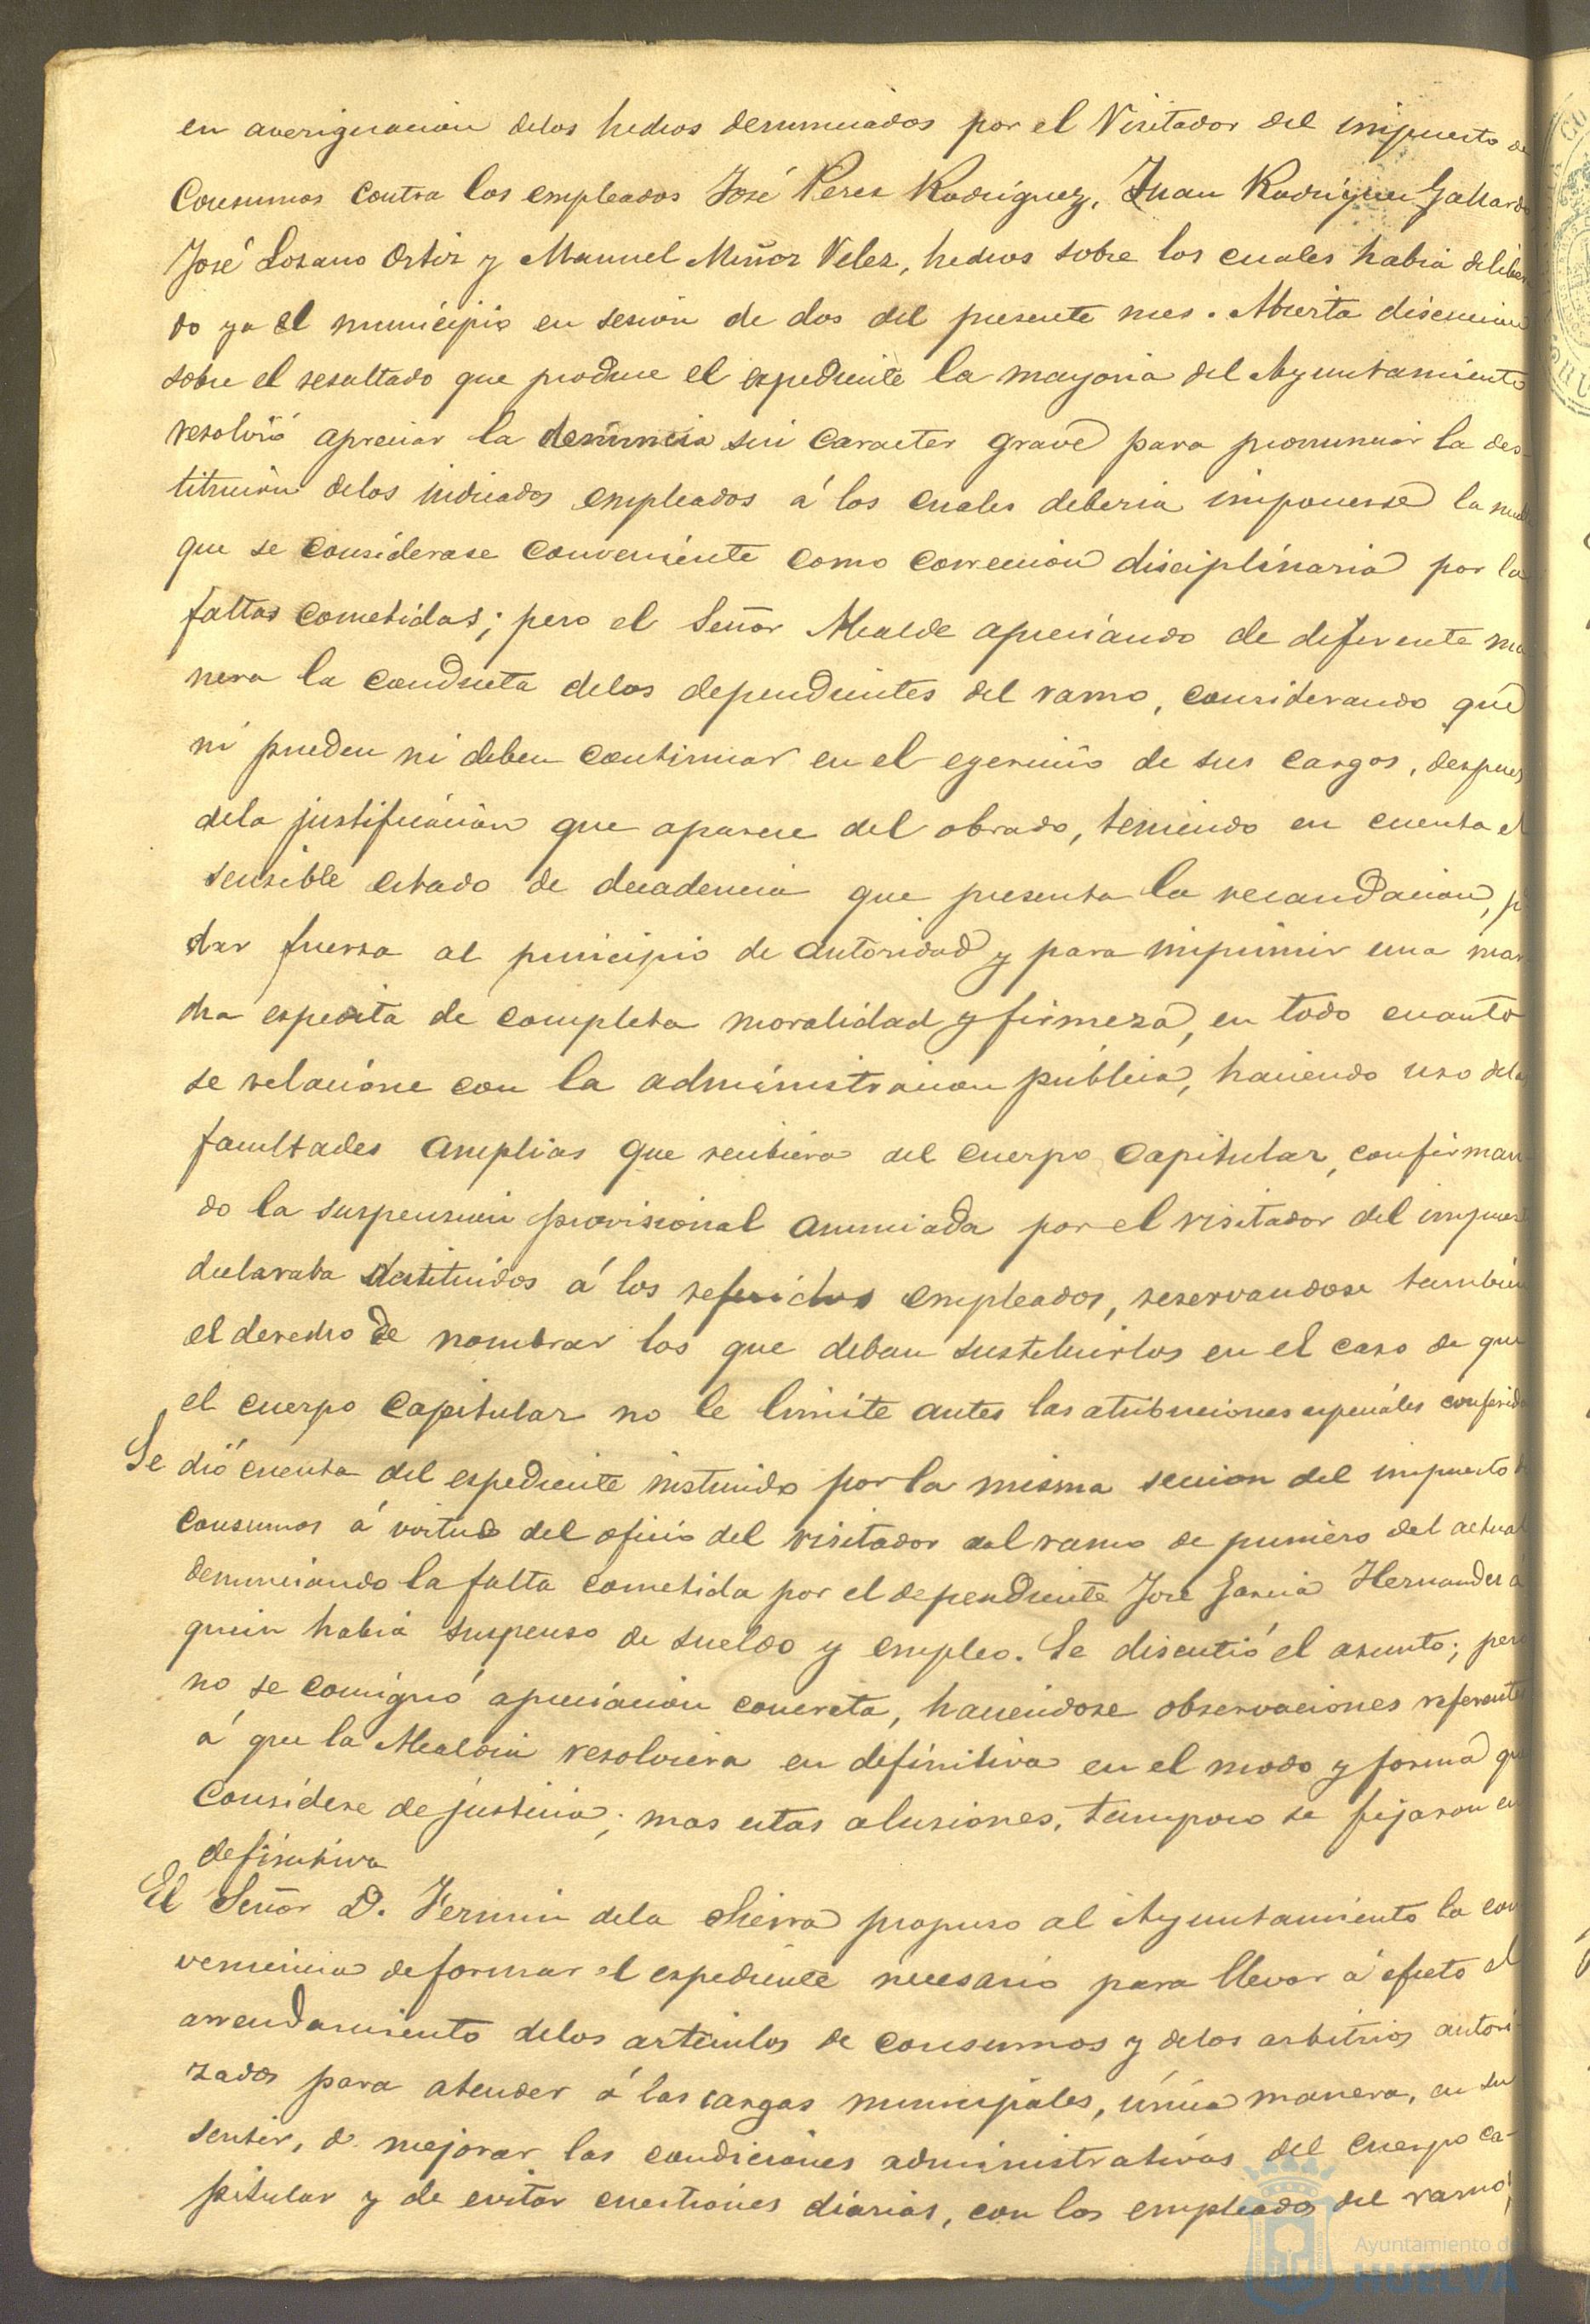 en averiguacion delos hechos denunciados por el Visitador del impuesto de
Consumos contra los empleados José Perez Rodriguez, Juan Rodriguez Gallardo
José Lozano Ortiz y Manuel Muñoz Velez, hechos sobre los cuales habia delibera
do ya el municipio en sesion de dos del presente mes. Abierta discucion
sobre el resultado que produce el espediente la mayoria del Ayuntamiento
resolvió apreciar la denuncia sin caracter grave para pronunciar la des-
titucion delos indicados empleados á los cuales deberia imponerse la multa
que se considerase conveniente como correccion disciplinaria por las
faltas cometidas; pero el Señor Alcalde apreciando de diferente ma
nera la conducta delos dependientes del ramo, considerando que
ni pueden ni deben continuar en el egercicio de sus cargos, despues
dela justificacion que aparece del obrado, teniendo en cuenta el
sensible estado de decadencia que presenta la recaudacion, p
dar fuerza al principio de autoridad y para imprimir una mar
cha espedita de completa moralidad y firmeza, en todo cuanto
se relacione con la administracion pública, haciendo uso delas
facultades amplias que recibiera del cuerpo capitular, confirman-
do la suspension provisional anunciada por el visitador del impuesto
declaraba destituidos á los referidos empleados, reservandose tambien
el derecho de nombrar los que deban sustituirlos en el caso de que
el cuerpo capitular no le limite antes las atribuciones especiales conferidas
Se dió cuenta del espediente instruido por la misma seccion del impuesto de
consumos á virtud del oficio del visitador del ramo de primero del actual
denunciando la falta cometida por el dependiente José Garcia Hernandez á
quien habia suspenso de sueldo y empleo. Se discutió el asunto; pero
no se consignó apreciacion concreta, haciendose observaciones referentes
á que la Alcaldia resolviera en definitiva en el modo y forma que
considere de justicia; mas estas alusiones, tampoco se fijaron en
definitiva
El Señor D. Fermin dela Sierra propuso al Ayuntamiento la con
veniencia de formar el espediente necesario para llevar á efecto el
arrendamiento delos articulos de consumos y delos arbitrios autori-
zados para atender á las cargas municipales, única manera, en su
sentir, de mejorar las condiciones administrativas del cuerpo ca-
pitular y de evitar cuestiones diarias, con los empleados del ramo,
Ayuntamiento de
HUELVA